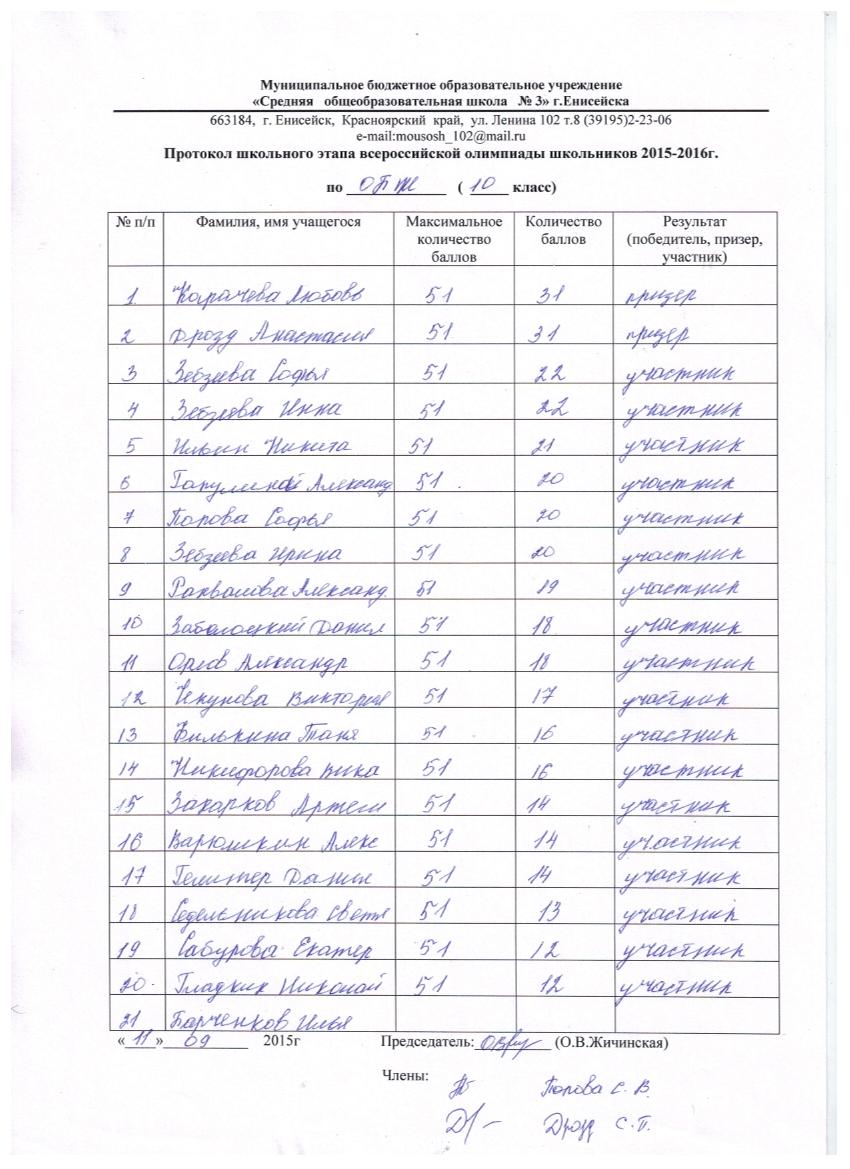 Муниципальное бюджетное образовательное учреждение
«Средняя общеобразовательная школа № 3» г.Енисейска
663184, г. Енисейск, Красноярский край, ул. Ленина 102 т.8 (39195)2-23-06
e-mail:mousosh_102@mail.ru
Протокол школьного этапа всероссийской олимпиады школьников 2015-2016г.
по ОБЖ ( 10 класс)
№ п/п Фамилия, имя учащегося Максимальное количество баллов Количество баллов Результат (победитель, призер, участник)
1 Карачева Любовь 51 31 призер
2 Дрозд Анастасия 51 31 призер
3 Зебзеева Софья 51 22 участник
4 Зебзеева Инна 51 22 участник
5 Ильин Никита 51 21 участник
6 Александ 51 20 участник
7 Попова Софья 51 20 участник
8 Зебзеева Ирина 51 20 участник
9 Александ 51 19 участник
10 Заболоцкий Данил 51 18 участник
11 Орлов Александр 51 18 участник
12 Чекунова Виктория 51 17 участник
13 Филькина Таня 51 16 участник
14 Никифорова Вика 51 16 участник
15 Захарков Артем 51 14 участник
16 Варюшкин Алекс 51 14 участник
17 Данил 51 14 участник
18 Седельникова Света 51 13 участник
19 Сабурова Екатер 51 12 участник
20. Гладких Николай 51 12 участник
21 Барченков Илья
«11» 09 2015г Председатель: (О.В.Жичинская)
Члены:
Попова С. В.
Дрозд С.П.